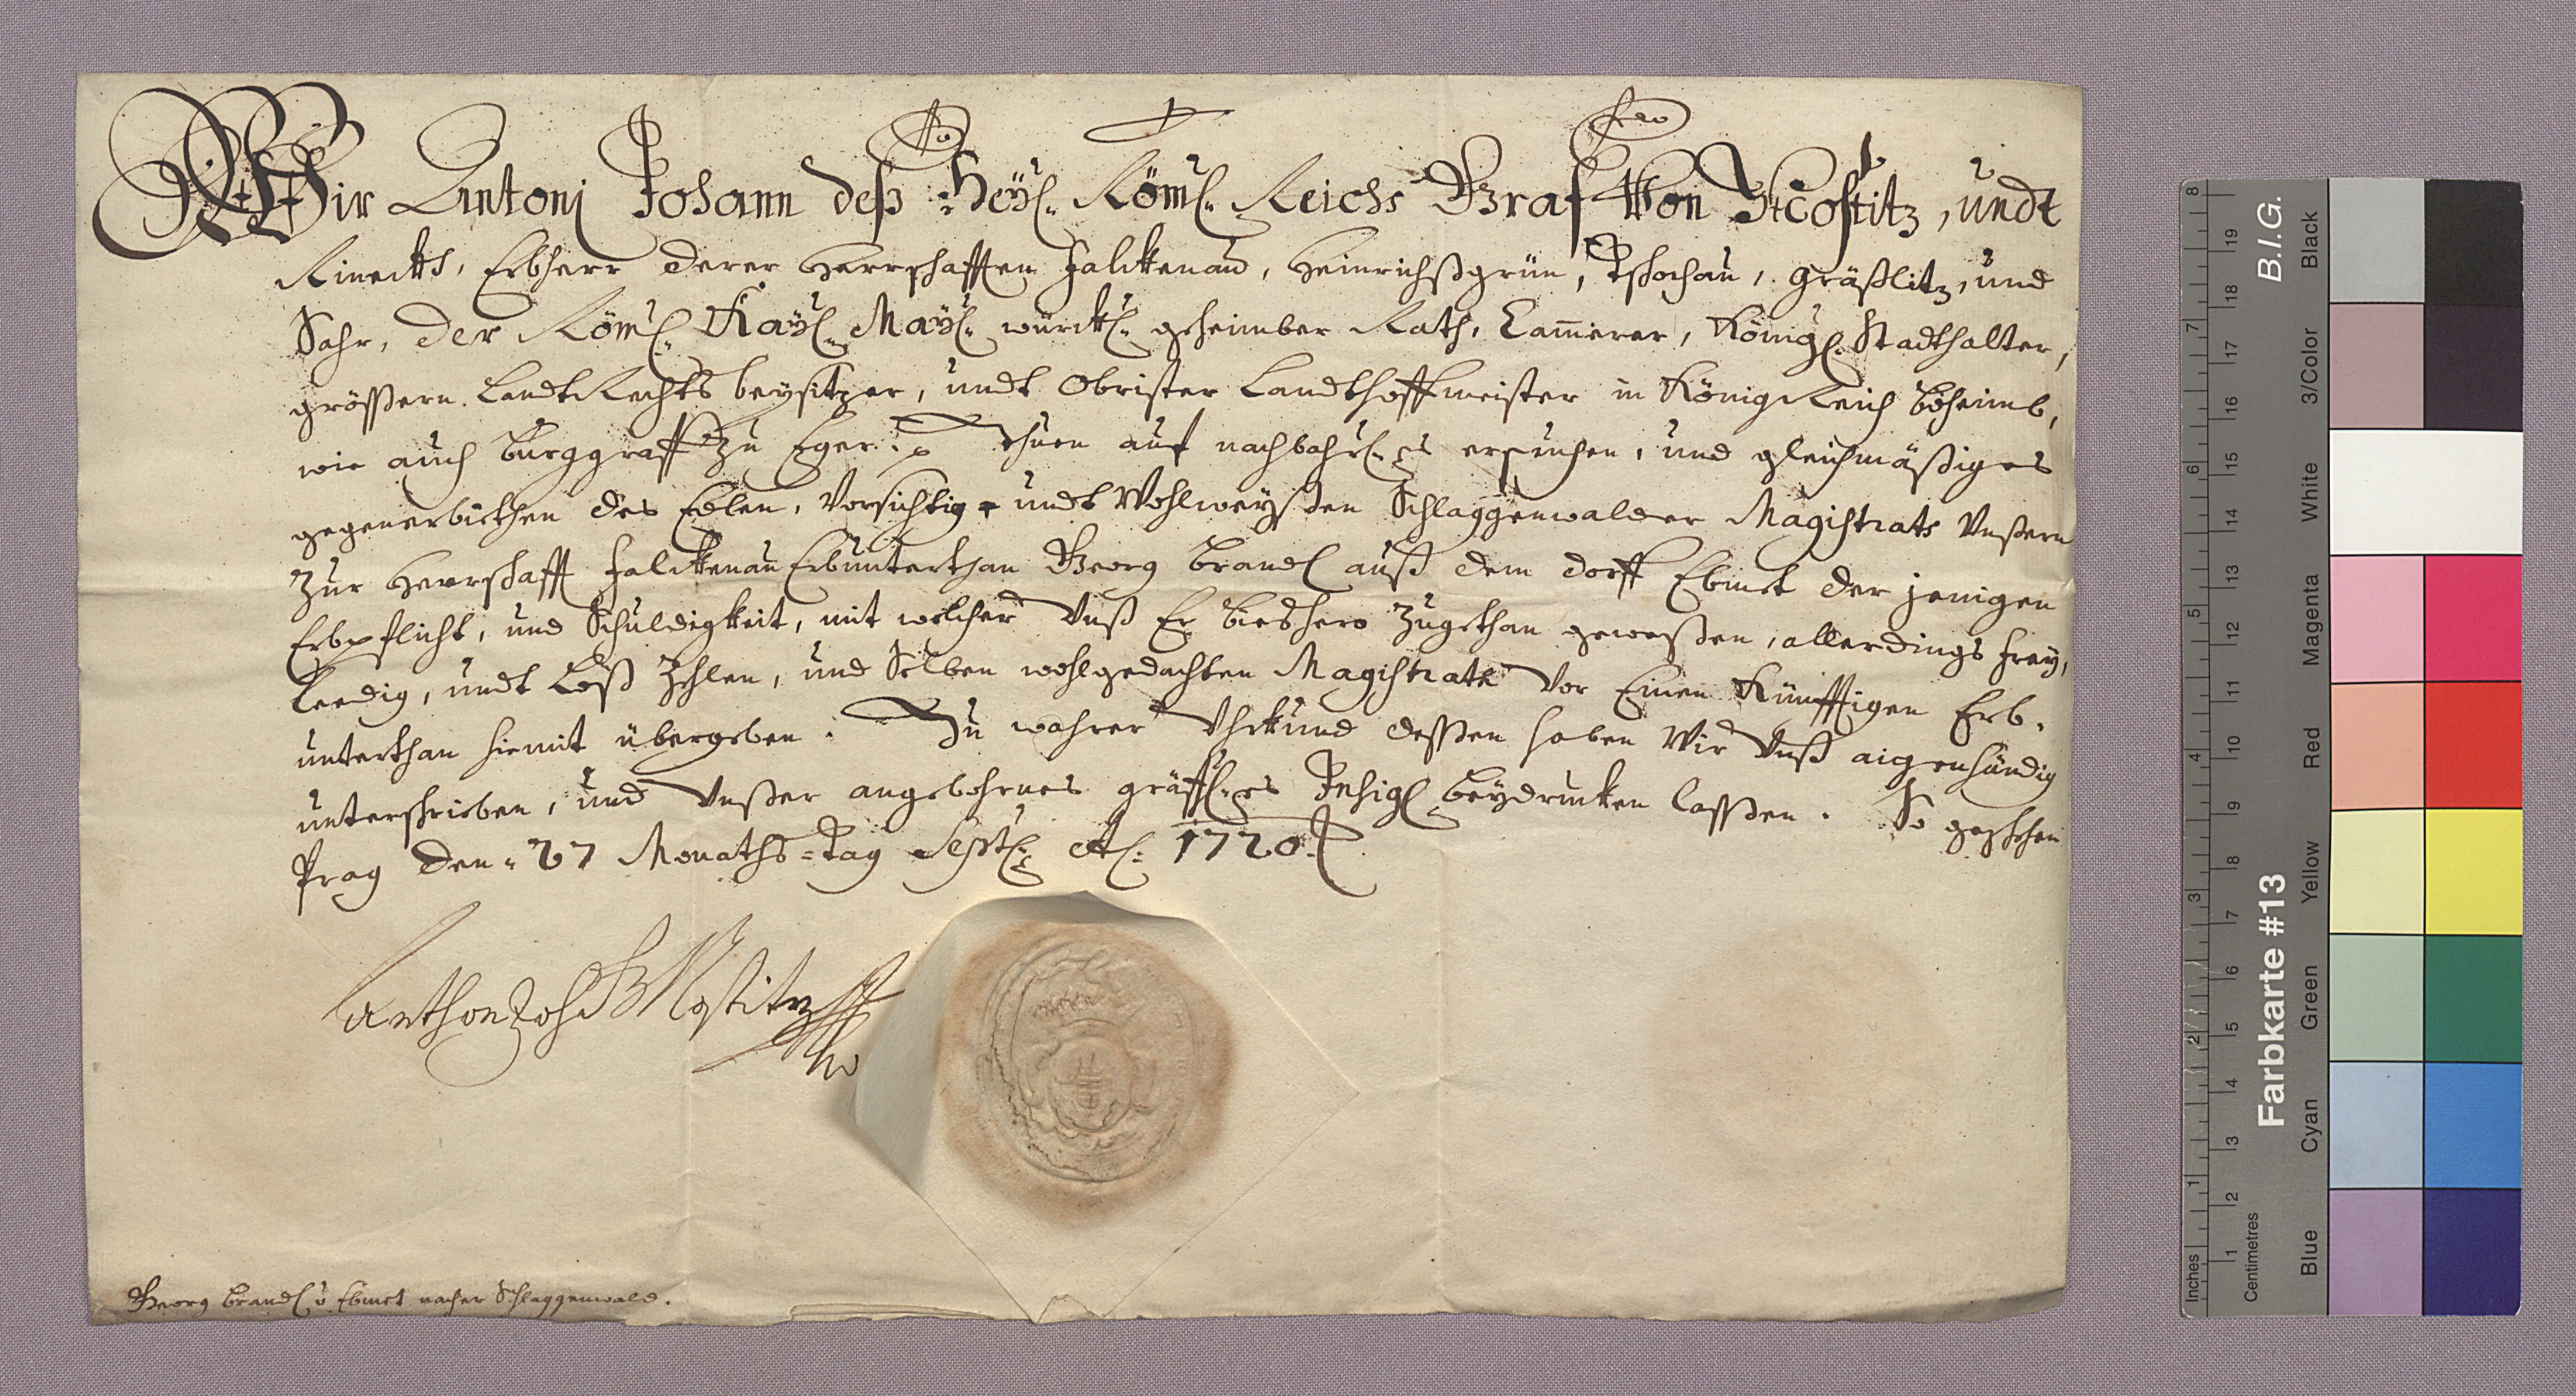 Wir Antonj Johann deß Heyl: Röml: Reichs Graf Von Nostitz, undt
Rineckh, Erbherr derer Herrschafften Falckenau, Heinrichßgrün, Tschochau, Gräßlitz, und
Sahr, Der Röml: Kayl: Mayl: würckl: geheimber Rath, Cam̄erer, Königl: Stadthalter,
größern Landt Rechts beysitzer, undt Obrister Landthoffmeister in König Reich Böheimb,
wie auch Burggraff zu Eger: Thuen auf nachbahrl:es ersuchen, und gleichmäßiges
gegenerbiethen des Edlen, Vorsichtig- undt Wohlweyßen Schlaggenwalder Magistrats Unßern
Zur Herrschafft Falckenau Erbunterthan Georg Brandl auß dem dorff Ebmet der jenigen
Erbpflicht, und Schuldigkeit, mit welcher Unß Er bieshero Zugethan geweßen, allerdings frey,
Leedig, undt Loß Zehlen, und Selben wohlgedachten Magistrath Vor Einen Künfftigen Erb-
unterthan hiemit übergeben. Zu wahrer Uhrkund deßen haben Wir Unß aigenhändig
unterschrieben, und Unßer angebohrnes gräffl:es Insigl beydrucken laßen. So geschehen
Prag den 27 Monaths-Tag Septl: Al: 1720.
Anthon Joh G Nostitz
Georg Brandl v Ebmet nacher Schlaggenwald.
Farbkarte #13
B.I.G.
Inches
Centimetres
Blue Cyan Green Yellow Red Magenta White 3/Color Black
1 2 3 4 5 6 7 8
1 2 3 4 5 6 7 8 9 10 11 12 13 14 15 16 17 18 19